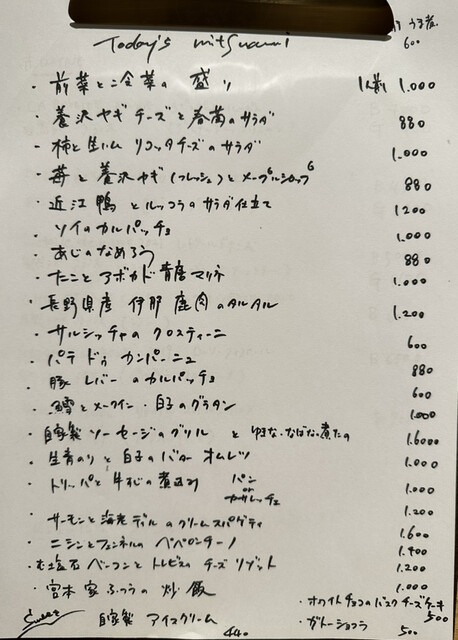 Today's mitsuami 600
・前菜と二全菜の 盛り 1人前 1.000
・養沢ヤギチーズと春菊のサラダ 880
・柿と生ハム リコッタチーズのサラダ 1.000
・苺と養沢ヤギ(フレッシュ)とメープルシロップ 880
・近江鴨とルッコラのサラダ仕立て 1200
・ソイのカルパッチョ 1.000
・あじのなめろう 880
・たことアボカド青唐マリネ 1.000
・長野県産 伊那 鹿肉のタルタル 1.200
・サルシッチャのクロスティーニ 600
・パテ ドゥ カンパーニュ 880
・豚レバーのカルパッチョ 600
・鱈とメークイン・白子のグラタン 1.000
・自家製ソーセージのグリル と ゆきな・なばな・煮たの 1.6000
・生青のりと白子のバターオムレツ 1.000
・トリッパと牛すじの煮込み パン or カサレッチェ 1.000
1.200
・サーモンと海老ディルのクリームスパゲティ 1.600
・ニシンとフェンネルのペペロンチーノ 1.400
・ベーコンとトレビスのチーズリゾット 1.200
・宮本家ふつうの炒飯 1.000
Sweets 自家製アイスクリーム 440
・ホワイトチョコのバスクチーズケーキ 500
・ガトーショコラ 500